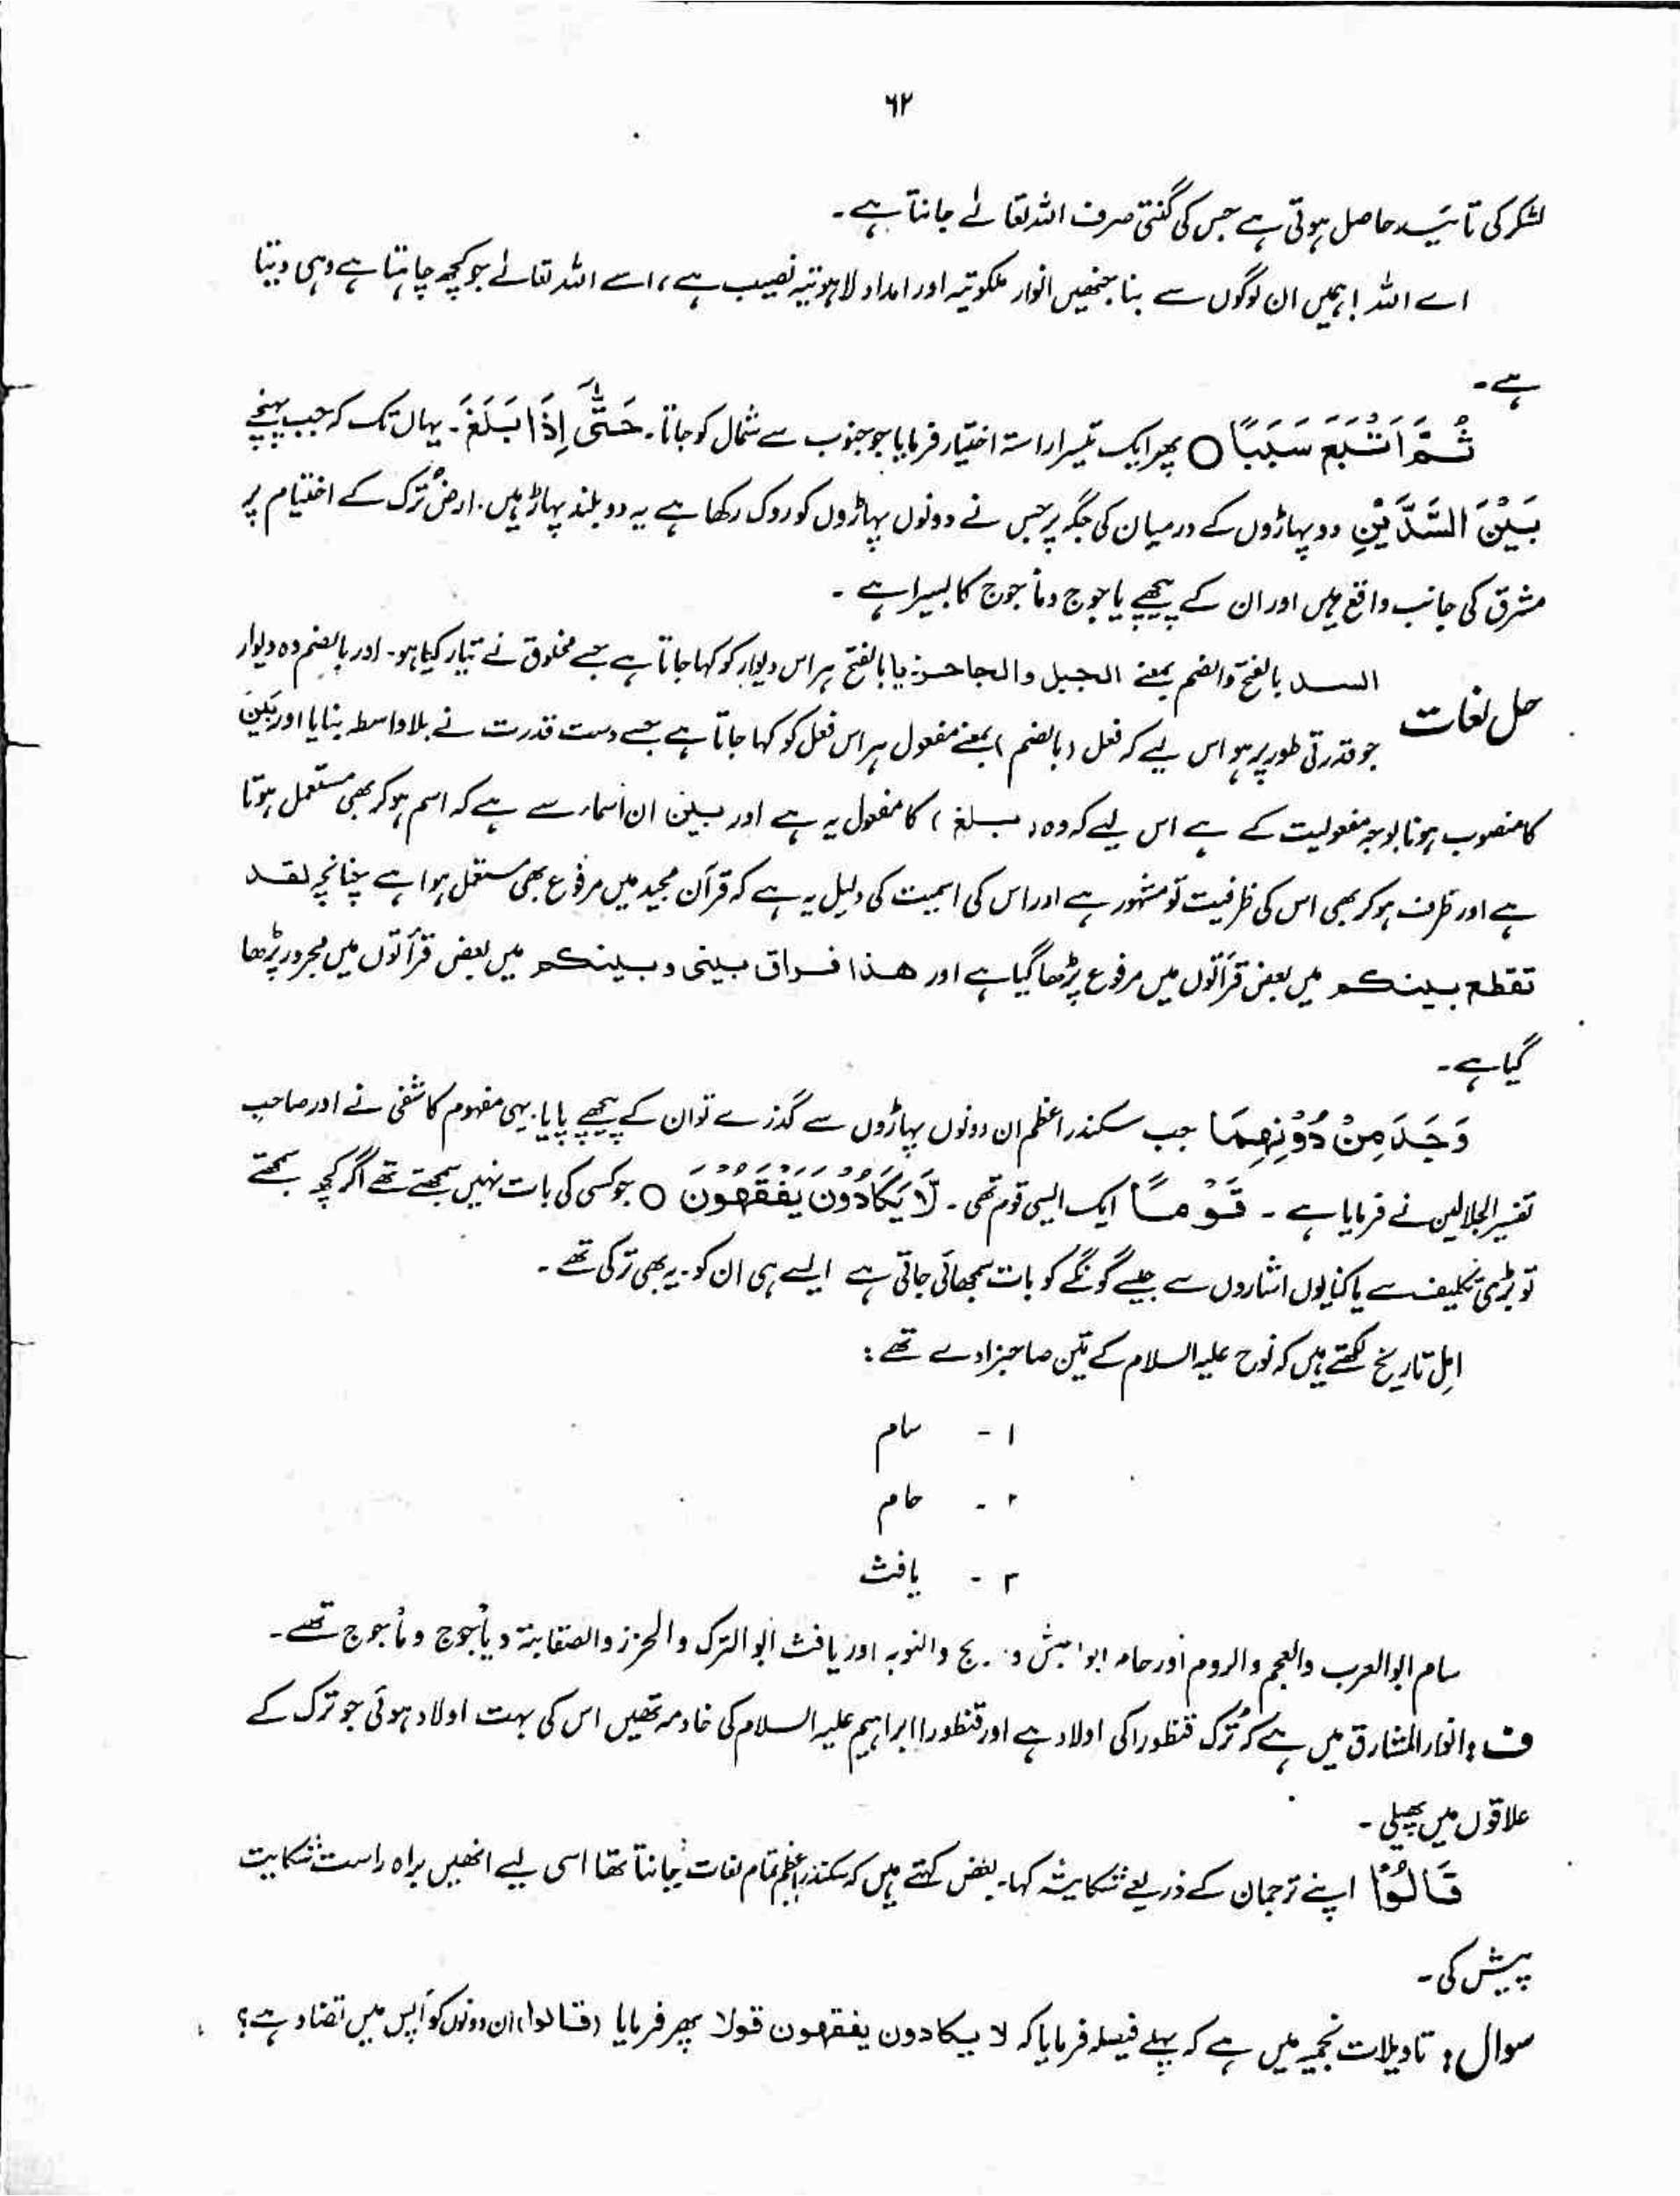 ۶۲
لشکر کی تائید حاصل ہوتی ہے جس کی گنتی صرف اللہ تعالےٰ جانتا ہے۔
اے اللہ! ہمیں ان لوگوں سے بنا جنھیں انوار ملکوتیہ اور امداد لاہوتیہ نصیب ہے، اسے اللہ تعالےٰ جو کچھ چاہتا ہے وہی دیتا
ہے۔
ثُمَّ اَتْبَعَ سَبَبًا ○ پھر ایک تیسرا راستہ اختیار فرمایا جو جنوب سے شمال کو جاتا۔ حَتّٰۤی اِذَا بَلَغَ۔ یہاں تک کہ جب پہنچے
بَیْنَ السَّدَّیْنِ دو پہاڑوں کے درمیان کی جگہ پر جس نے دونوں پہاڑوں کو روک رکھا ہے یہ دو بلند پہاڑ ہیں۔ ارض تُرک کے اختیام پر
مشرق کی جانب واقع ہیں اور ان کے پیچھے یاجوج و مأجوج کا بسیرا ہے۔
حل لغات السد بالفتح والضم بمعنے الجبل والحاجز یا بالفتح ہر اس دیوار کو کہا جاتا ہے جسے مخلوق نے تیار کیا ہو۔ اور بالضم وہ دیوار
جو قدرتی طور پر ہو اس لیے کہ فعل (بالضم) بمعنے مفعول ہر اس فعل کو کہا جاتا ہے جسے دست قدرت نے بلاواسطہ بنایا اور بَیْنَ
کا منصوب ہونا بوجہ مفعولیت کے ہے اس لیے کہ وہ (بلغ) کا مفعول بہ ہے اور بین ان اسماء سے ہے کہ اسم ہو کر بھی مستعمل ہوتا
ہے اور ظرف ہو کر بھی اس کی ظرفیت تو مشہور ہے اور اس کی اسمیت کی دلیل یہ ہے کہ قرآن مجید میں مرفوع بھی مستعمل ہوا ہے چنانچہ لقد
تقطع بینکم میں بعض قرأتوں میں مرفوع پڑھا گیا ہے اور ھذا فراق بینی و بینکم میں بعض قرأتوں میں مجرور پڑھا
گیا ہے۔
وَجَدَ مِنْ دُوْنِھِمَا جب سکندر اعظم ان دونوں پہاڑوں سے گذرے تو ان کے پیچھے پایا۔ یہی مفہوم کاشفی نے اور صاحبِ
تفسیر الجلالین نے فرمایا ہے۔ قَوْمًا ایک ایسی قوم تھی۔ لَّا یَکَادُوْنَ یَفْقَھُوْنَ ○ جو کسی کی بات نہیں سمجھتے تھے اگر کچھ سمجھتے
تو بڑی تکلیف سے یا کنایوں اشاروں سے جیسے گونگے کو بات سمجھائی جاتی ہے ایسے ہی ان کو۔ یہ بھی ترکی تھے۔
اہلِ تاریخ لکھتے ہیں کہ نوح علیہ السلام کے تین صاحبزادے تھے:
۱- سام
۲- حام
۳- یافث
سام ابوالعرب والعجم والروم اور حام ابوالحبش و والنوبہ اور یافث ابوالترک والخزز والصقابنۃ و یأجوج و مأجوج تھے۔
ف: انوار المشارق میں ہے کہ تُرک قنطورا کی اولاد ہے اور قنطورا ابراہیم علیہ السلام کی خادمہ تھیں اس کی بہت اولاد ہوئی جو ترک کے
علاقوں میں پھیلی۔
قَالُوْا اپنے ترجمان کے ذریعے شکایتہً کہا۔ بعض کہتے ہیں کہ سکندر اعظم تمام لغات جانتا تھا اسی لیے انھیں براہ راست شکایت
پیش کی۔
سوال: تاویلات نجمیہ میں ہے کہ پہلے فیصلہ فرمایا کہ لا یکادون یفقھون قولا پھر فرمایا (قالوا) ان دونوں کو آپس میں تضاد ہے؟